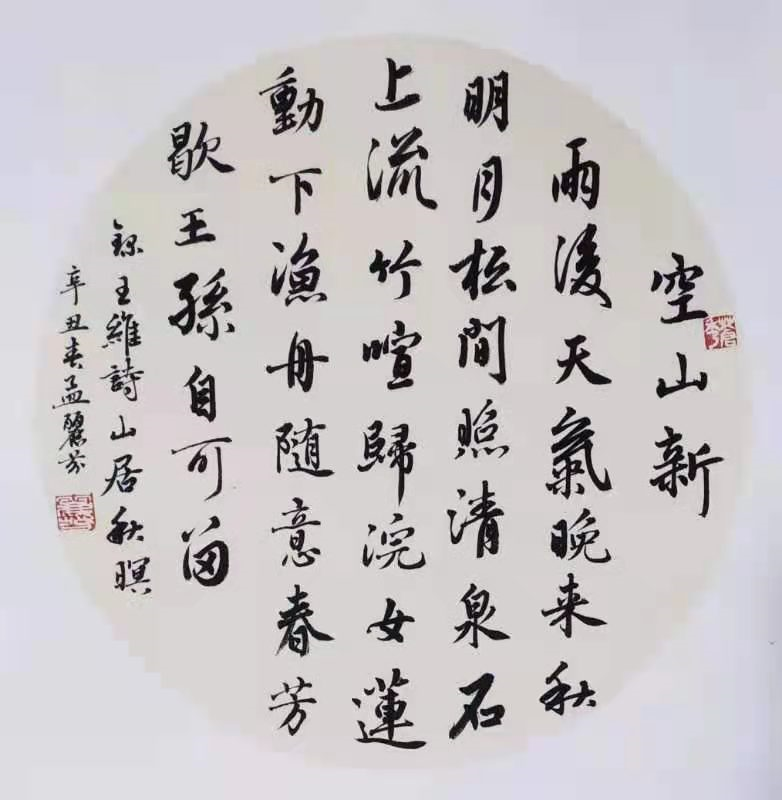 空山新
雨後天氣晚来秋
明月松間照清泉石
上流竹喧歸浣女蓮
動下漁舟随意春芳
歇王孫自可留
錄王維詩山居秋暝
辛丑春孟麗芬